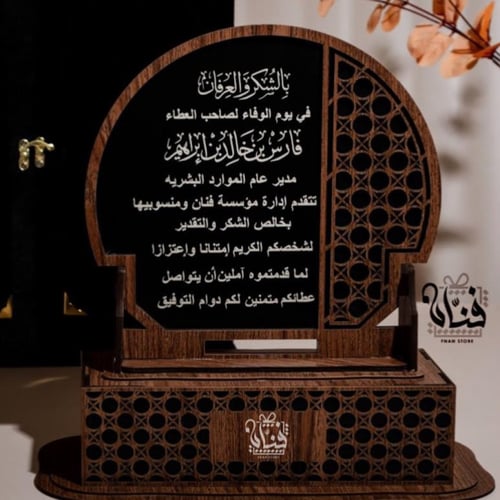 بالشكر والعرفان
في يوم الوفاء لصاحب العطاء
فارس بن خالد بن إبراهيم
مدير عام الموارد البشريه
تتقدم إدارة مؤسسة فنان ومنسوبيها
بخالص الشكر والتقدير
لشخصكم الكريم إمتنانا وإعتزازا
لما قدمتموه آملين أن يتواصل
عطائكم متمنين لكم دوام التوفيق
فنان
FNAN STORE
فنان